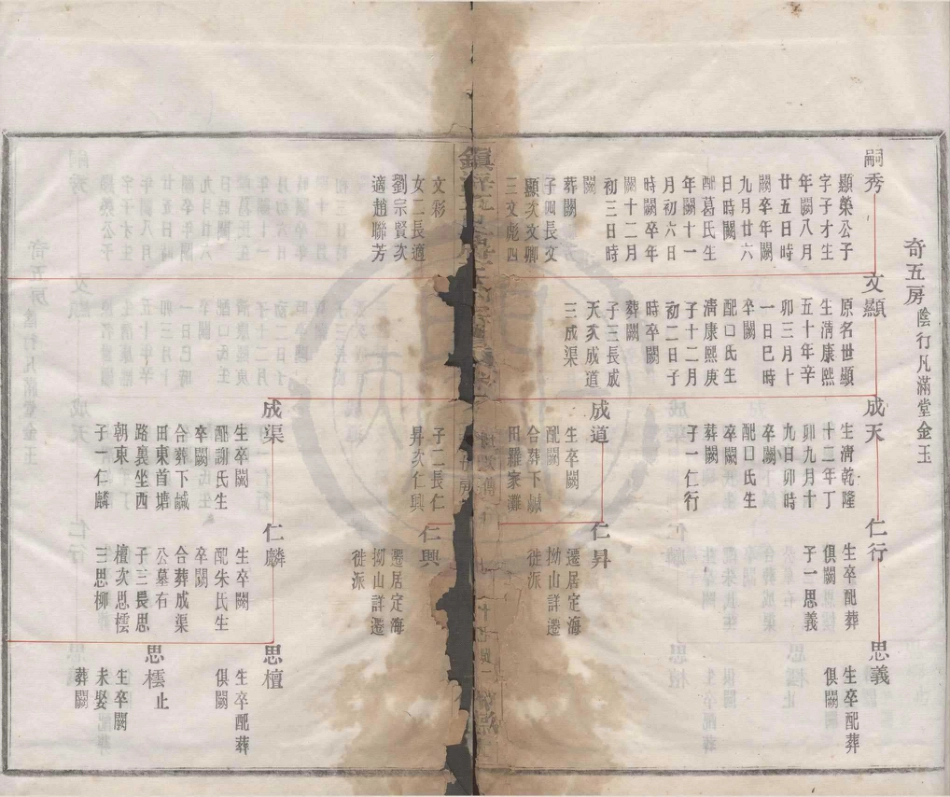 奇五房 蔭行凡滿堂金玉
嗣秀
顯榮公子
字子才生
年闕八月
廿五日時
闕卒年闕
九月廿六
日時闕
配葛氏生
年闕十一
月初六日
時闕卒年
闕十二月
初三日時
闕
葬闕
子四長文
顯次文卿
三文彪四
文彩
女二長適
劉宗賢次
適趙聯芳
文顯
原名世顯
生淸康熙
五十年辛
卯三月十
一日巳時
卒闕
配口氏生
淸康熙庚
子十二月
初二日子
時卒闕
葬闕
子三長成
天次成道
三成渠
成天
生淸乾隆
十二年丁
卯九月十
九日卯時
卒闕
配口氏生
卒闕
葬闕
子一仁行
成道
生卒闕
配闕
合葬下
田羅家灘
子二長仁
昇次仁興
成渠
生卒闕
配謝氏生
卒闕
合葬下
田東首塘
路裏坐西
朝東
子一仁麟
仁行
生卒配葬
俱闕
子一思義
仁昇
遷居定海
拗山詳遷
徙派
仁興
遷居定海
拗山詳遷
徙派
仁麟
生卒闕
配朱氏生
卒闕
合葬成渠
公墓右
子三長思
檀次思橒
三思柳
思義
生卒配葬
俱闕
思檀
生卒配葬
俱闕
思橒止
生卒闕
未娶
葬闕